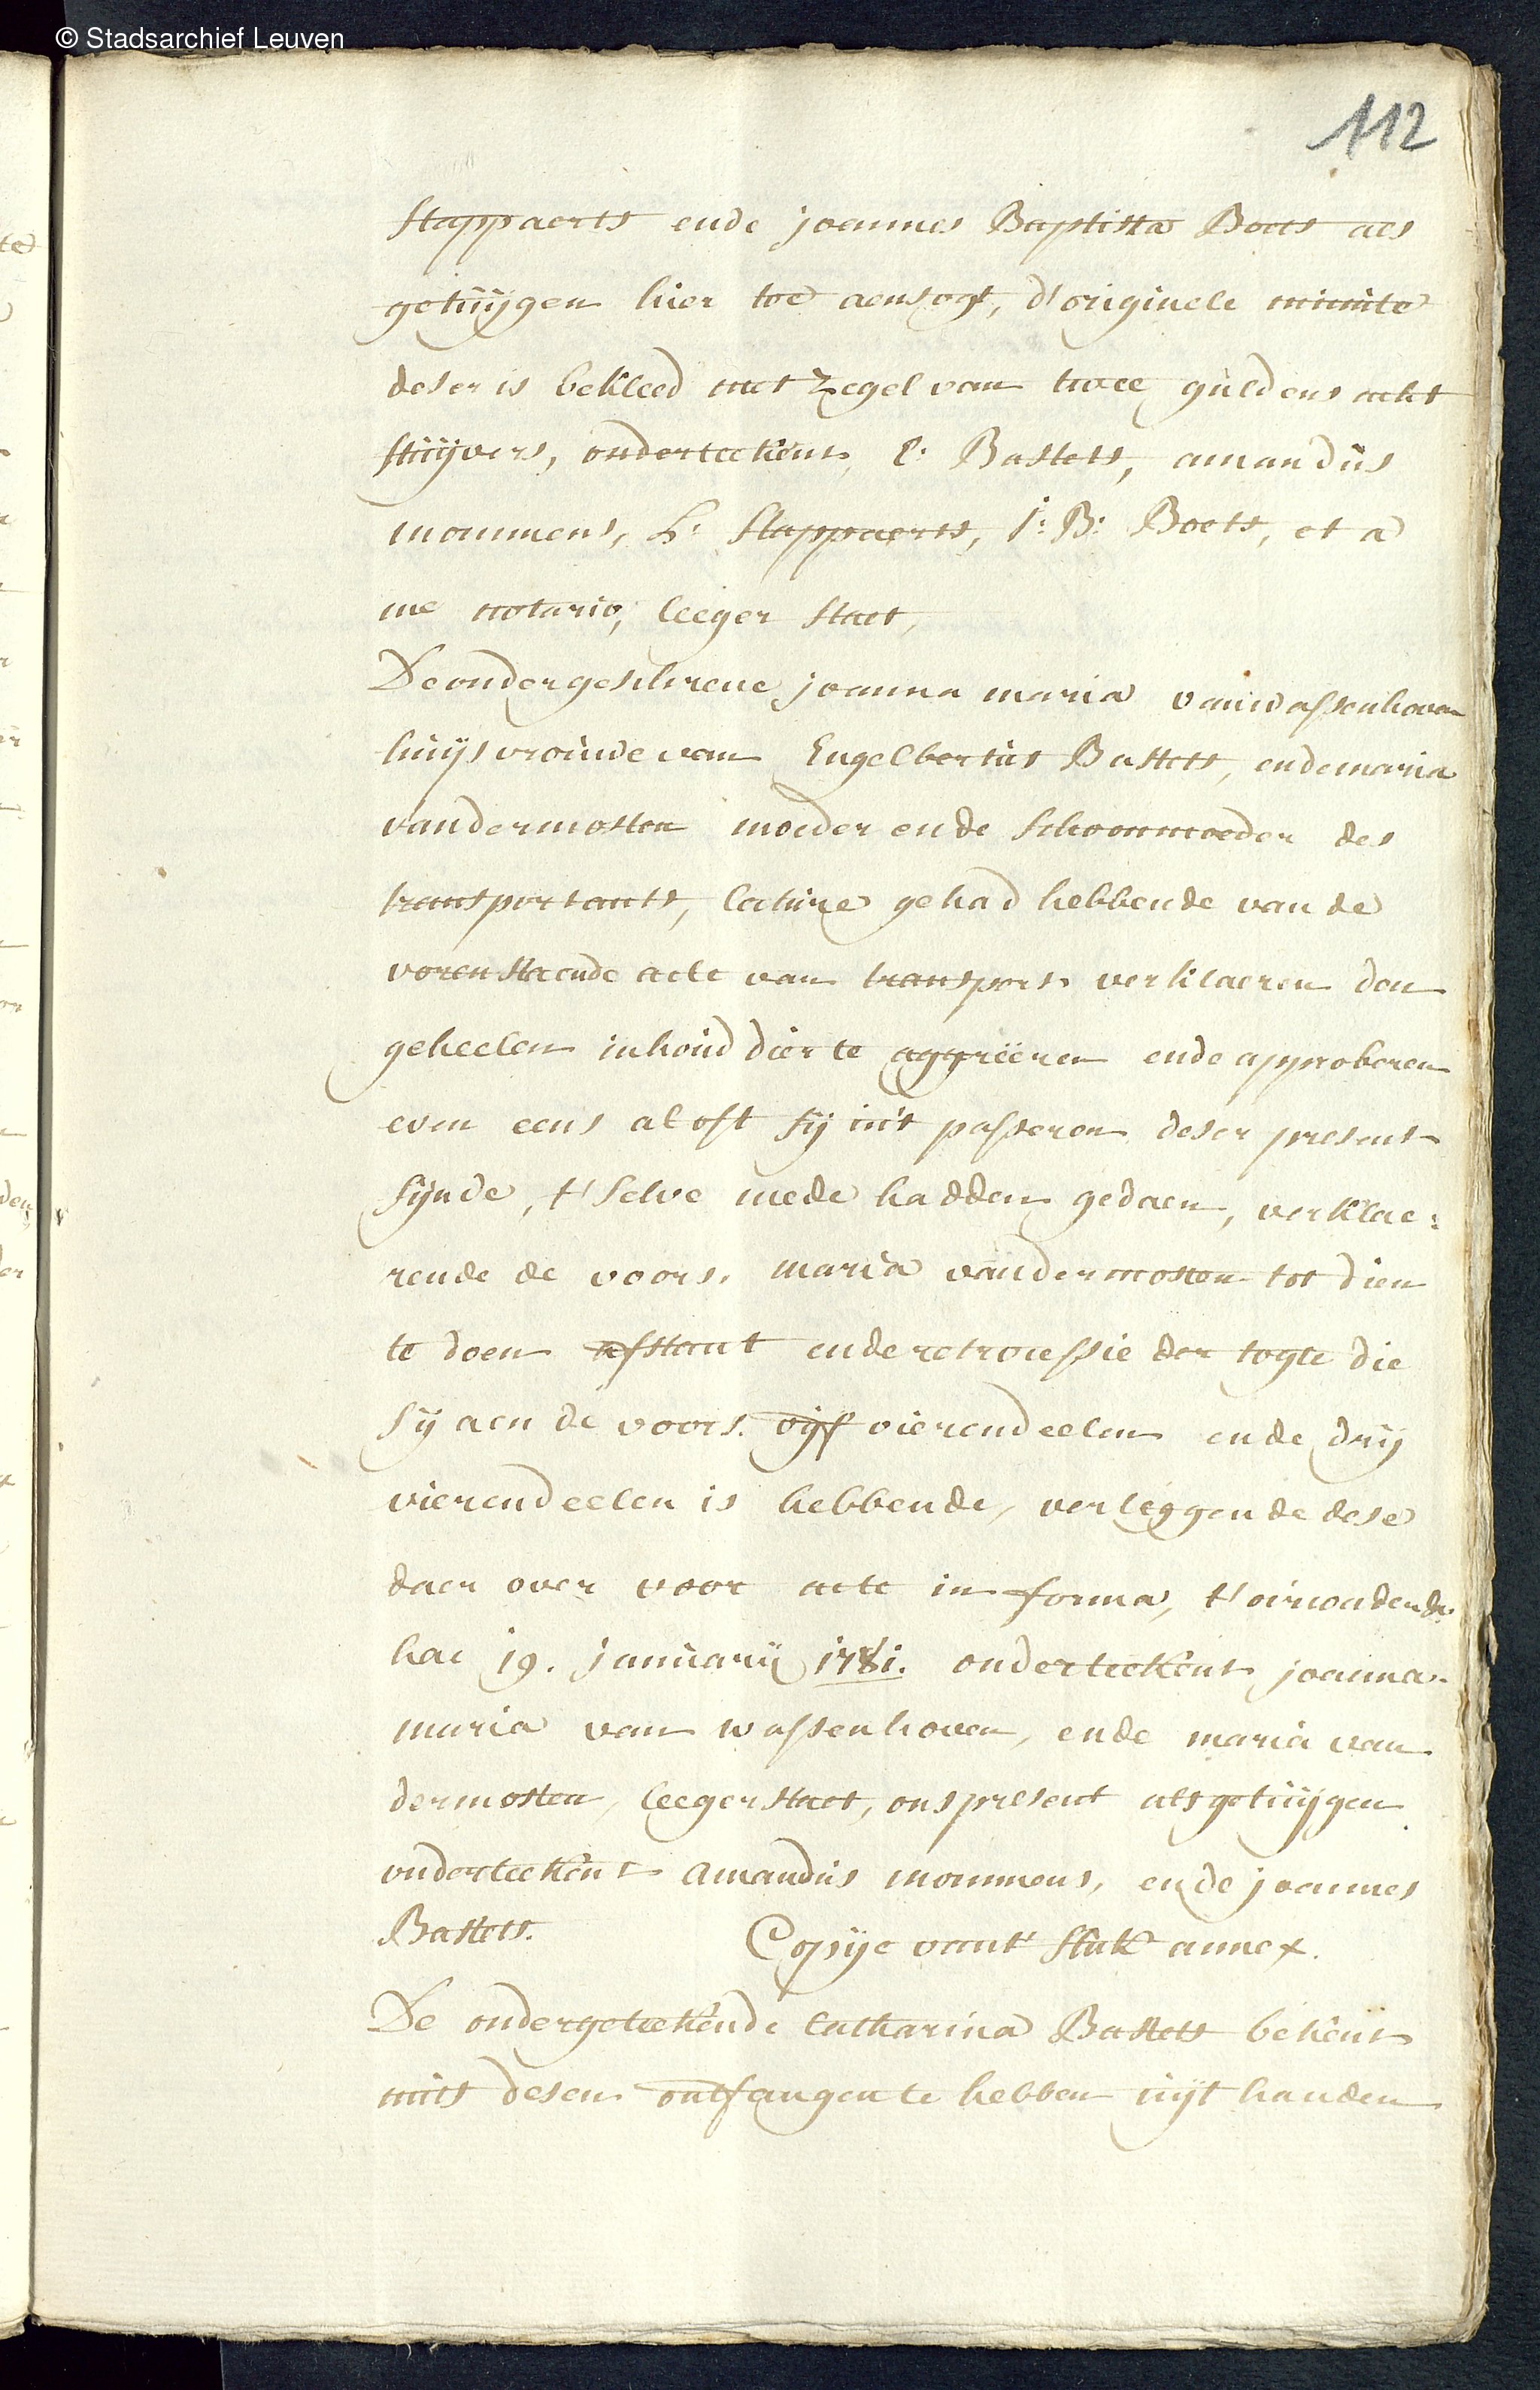 © Stadsarchief Leuven
112
Stappaerts ende joannes Baptista Boets als
getuijgen hier toe aensogt, d'originele minute
deser is bekleed met Zegel van twee guldens acht
stuijvers, onderteekent, E: Bastets, amandus
mommens, h: Stappaerts, J: B: Boets, et a
me notario, leeger staet,
De ondergeschreve joanna maria vanwassenhoven
huijsvrouwe van Engelbertus Bastets, ende maria
vandermosten moeder ende schoonmoeder des
transportants, lecture gehad hebbende van de
vorenstaende acte van transport verklaeren den
geheelen inhoud dier te aggreëren ende approberen
even eens al oft sij in't passeren deser present
sijnde, t'selve mede hadden gedaen, verklae:
rende de voors. maria vandermosten tot dien
te doen afstant ende retrocessie der togte die
sij aen de voors. vijf vierendeelen ende drij
vierendeelen is hebbende, verleggende dese
daer over voor acte in forma, t'oirconden de
hac 19. januarij 1781. onderteekent joanna
maria van wassenhoven, ende maria van
dermosten, leeger staet, ons present als getuijgen
onderteekent Amandus mommens, ende joannes
Bastets.
Copije vant stuk annex.
De ondergeteekende Catharina Bastets bekent
mits desen ontfangen te hebben uijt handen